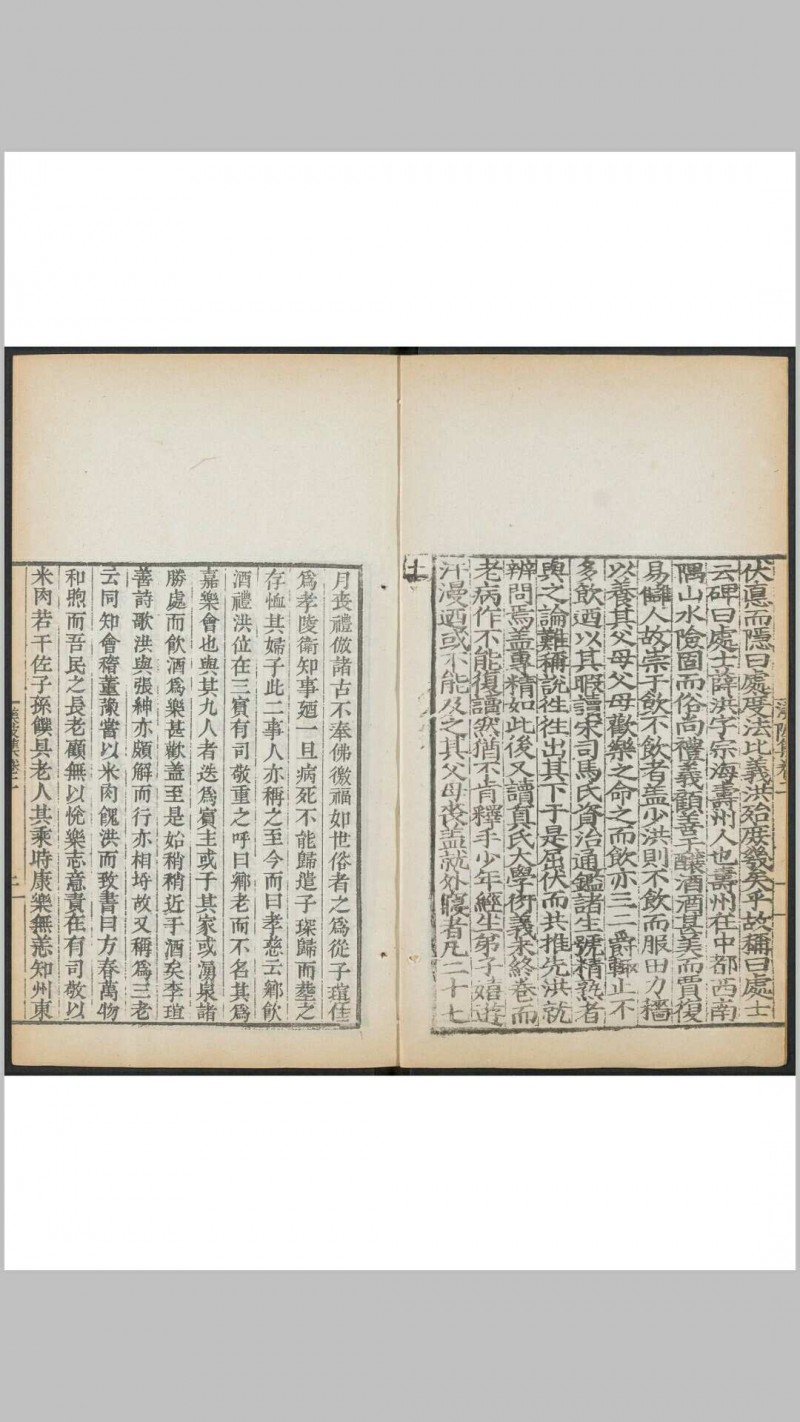 伏惪而隱曰處處度法比義洪殆庶幾矣乎故稱曰處士
云碑曰處士薛洪字宗海壽州人也壽州在中都西南
隅山水險固而俗尚禮義顧善于釀酒酒甚美而賈復
易讎人故崇于飲不飲者盖少洪則不飲而服田力穡
以養其父母父母歡樂之命之而飲亦三二爵輒止不
多飲迺以其暇讀宋司馬氏資治通鑑諸生號精熟者
與之論難稱說徃徃出其下于是屈伏而共推先洪就
辨問焉盖專精如此後又讀真氏大學衍義未終卷而
老病作不能復讀然猶不肯釋手少年經生弟子嬉遊
汗漫迺或不能及之其父母喪盖就外寢者凡二十七
月喪禮倣諸古不奉佛徼福如世俗者之為從子瑄隹
為孝陵衛知事廼一旦病死不能歸遣子琛歸而塟之
存恤其婦子此二事人亦稱之至今而曰孝慈云鄉飲
酒禮洪位在三賓有司敬重之呼曰鄉老而不名其為
嘉樂會也與其九人者迭為賓主或于其家或湧泉諸
勝處而飲酒為樂甚歡盖至是始稍稍近于酒矣李瑄
善詩歌洪與張紳亦頗解而行亦相埒故又稱為三老
云同知會稽董豫嘗以米肉餽洪而致書曰方春萬物
和煦而吾民之長老顧無以悅樂志意責在有司敬以
米肉若干佐子孫饌具老人其乘時康樂無恙知州東